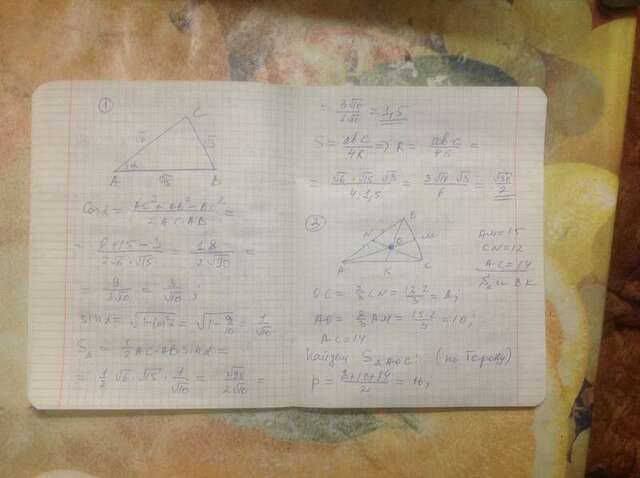 ①
C
√6
√3
α
A
√15
B
cos α = (AC² + AB² − BC²)/(2 AC·AB) =
= (6+15−3)/(2√6·√15) = 18/(2√90) =
= 9/(3√10) = 3/√10 ;
sin α = √(1−cos²α) = √(1−9/10) = 1/√10
S△ = 1/2 AC·AB sin α =
= 1/2 √6·√15·1/√10 = √90/(2√10) =
= 3√10/(2√10) = 1,5
S = abc/4R ⇒ R = abc/4S =
= √6·√15·√3/(4·1,5) = 3√10·√3/6 = √30/2
②
B
N
O
M
A
K
C
AM = 15
CN = 12
AC = 14
S△ и BK
OC = 2/3 CN = 12·2/3 = 8;
AO = 2/3 AM = 15·2/3 = 10;
AC = 14
Найдем S△AOC: (по Герону)
p = (8+10+14)/2 = 16;